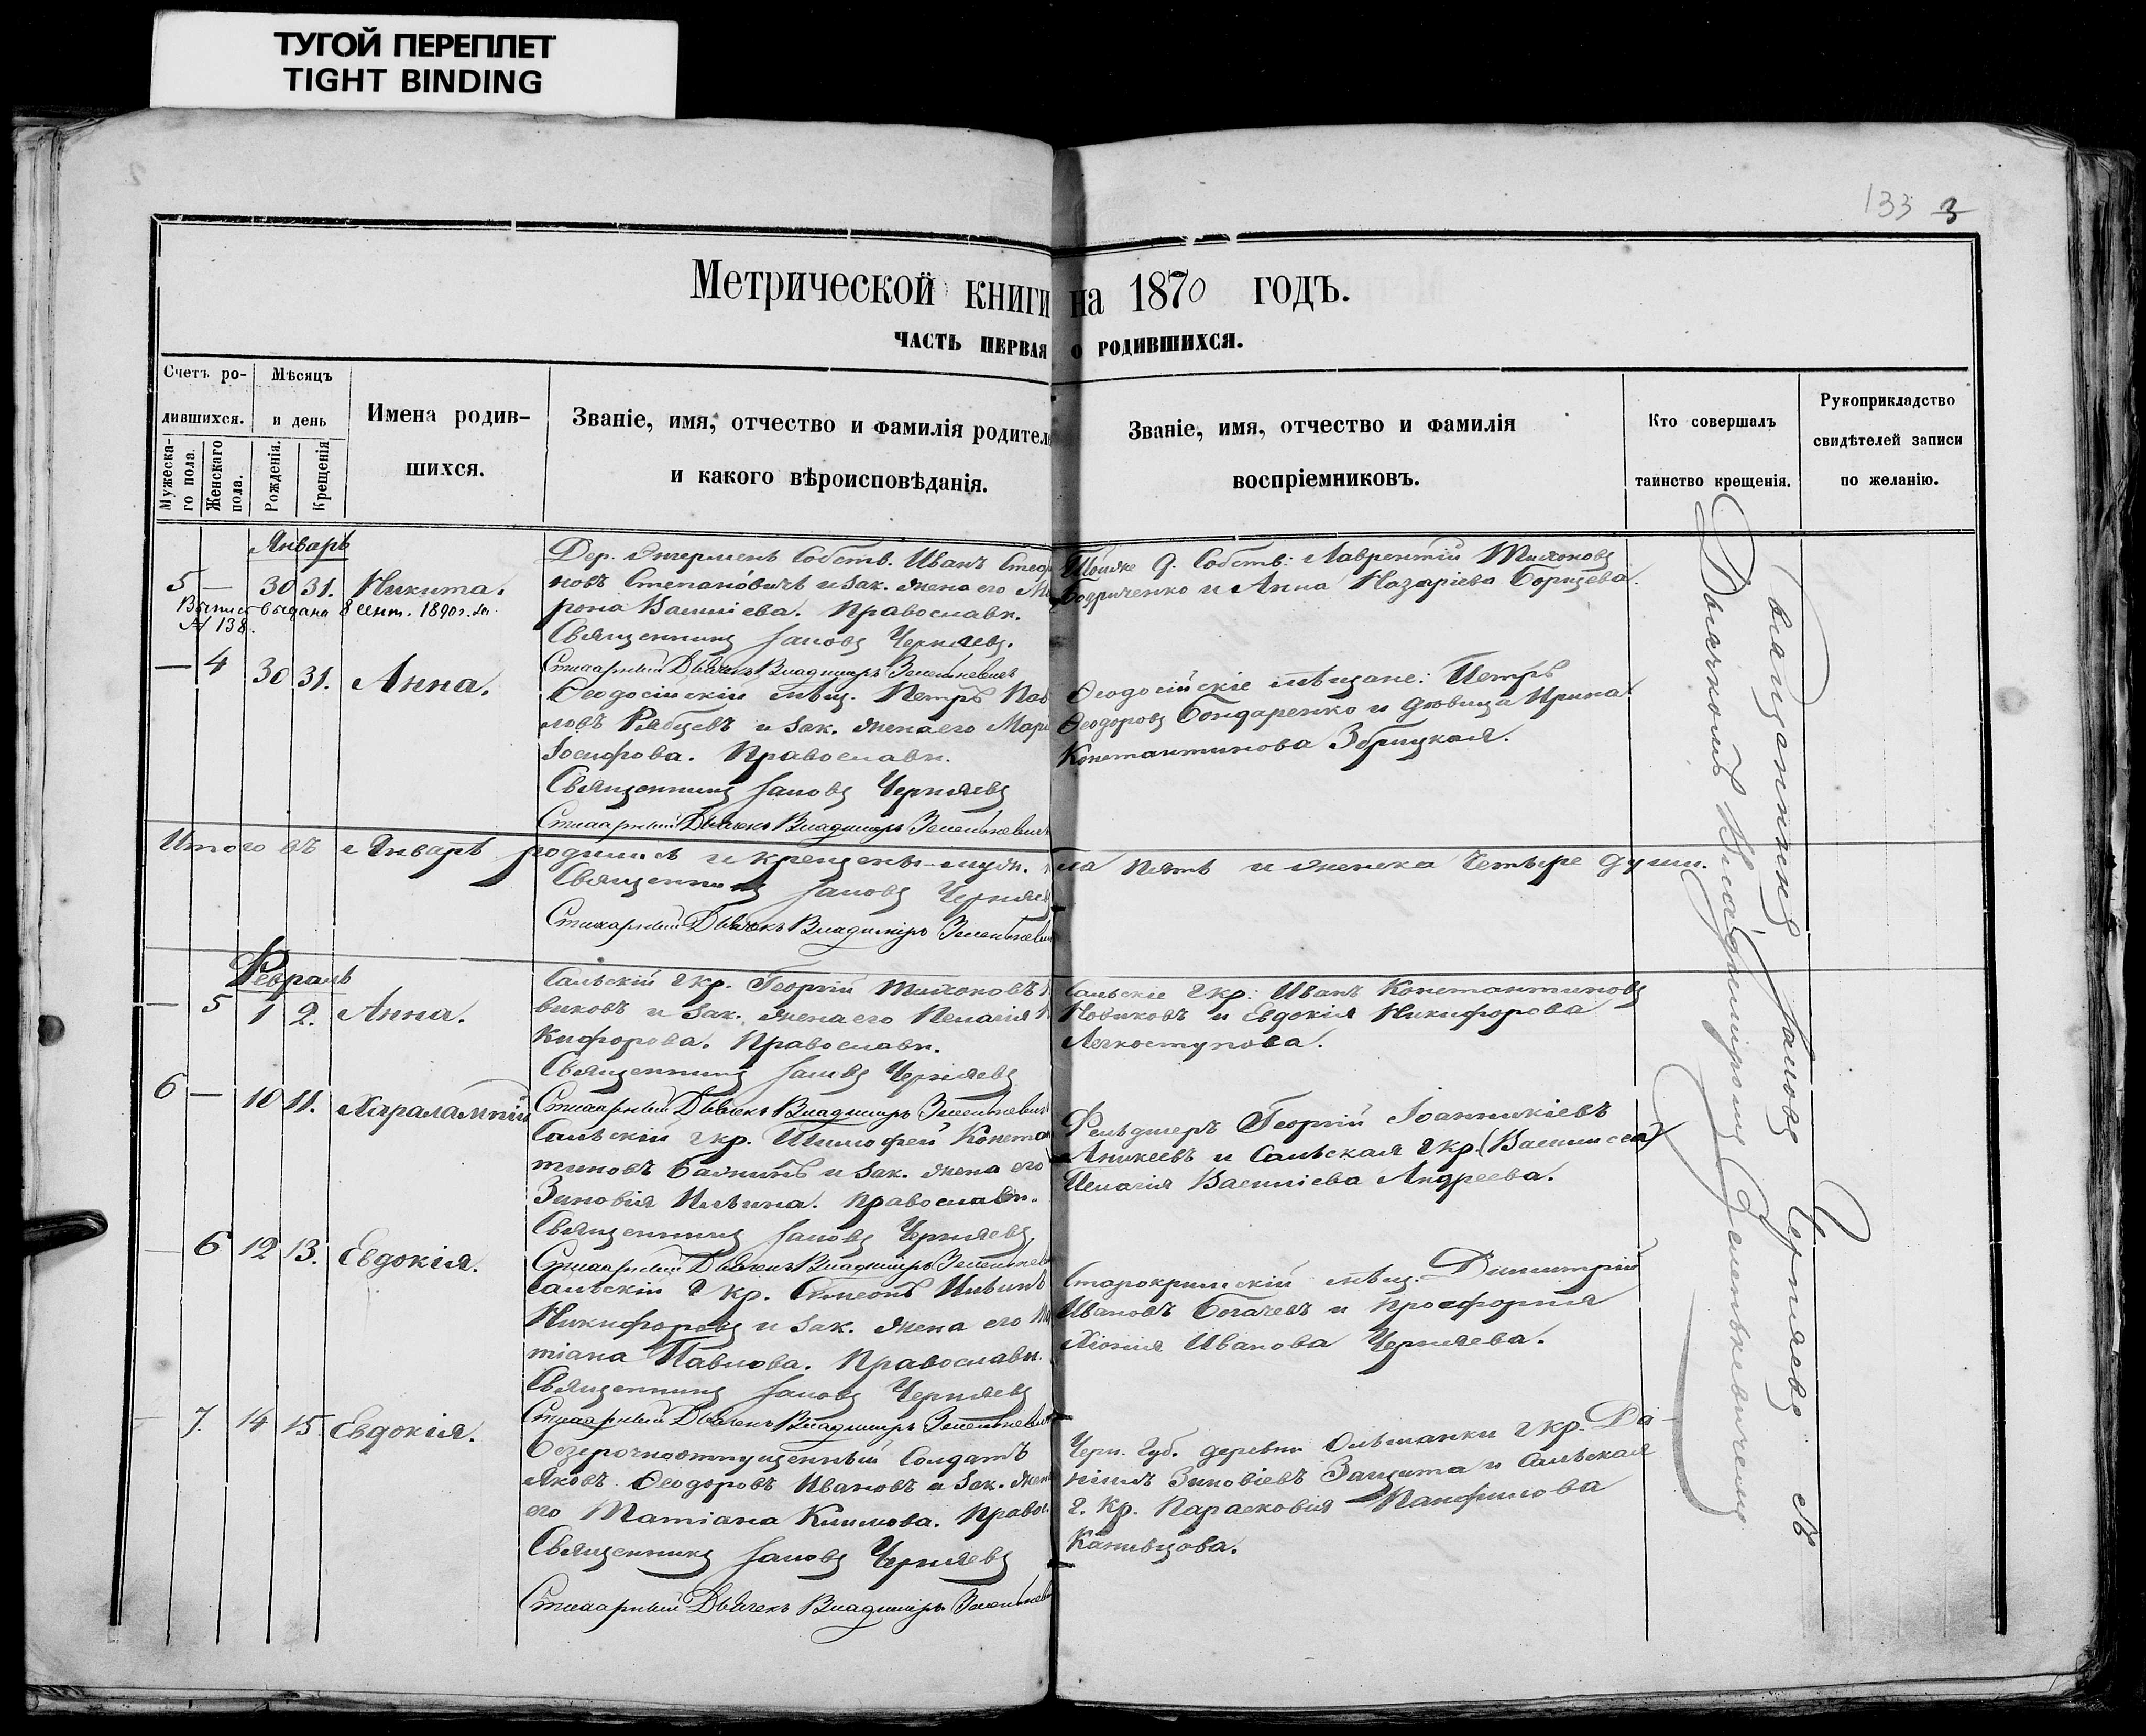 ТУГОЙ ПЕРЕПЛЕТ
TIGHT BINDING
133 3
Метрической книги на 1870 годъ.
ЧАСТЬ ПЕРВАЯ О РОДИВШИХСЯ.
Счетъ ро-
дившихся.
Мужеска-
го пола.
Женскаго
пола.
Мѣсяцъ
и день
Рожденія.
Крещенія
Имена родив-
шихся.
Званіе, имя, отчество и фамилія родителе
и какого вѣроисповѣданія.
Званіе, имя, отчество и фамилія
воспріемниковъ.
Кто совершалъ
таинство крещенія.
Рукоприкладство
свидѣтелей записи
по желанію.
Январь
5 — 30 31. Никита.
Выпись выдана 8 сент. 1890 г. за
№ 138.
Дер. Собств. Иванъ
новъ Степановичъ и зак. жена его
рона Василіева. Православн.
Священникъ Іаковъ Черняевъ.
Стихарный Дьячекъ Владиміръ Зеленкевичъ
д. Собств: Лаврентій Тихоновъ
Бодриченко и Анна Назаріева Борщева.
— 4 30 31. Анна.
Ѳеодосійскій мѣщ. Петръ Пав
ловъ Рябцевъ и зак. жена его Мари
Іосифова. Православн.
Священникъ Іаковъ Черняевъ
Стихарный Дьячекъ Владиміръ Зеленкевичъ
Ѳеодосійскіе мѣщане: Петръ
Ѳеодоровъ Бондаренко и дѣвица Ирина
Константинова Збрицкая.
Итого въ Январѣ родились и крещены муж. на пять и женска четыре души.
Священникъ Іаковъ Черняевъ
Стихарный Дьячекъ Владиміръ Зеленкеви
Февраль
— 5 1 2. Анна.
Сальскій г кр. Георгій Тихоновъ
виковъ и зак. жена его Пелагія
кифорова. Православн.
Священникъ Іаковъ Черняевъ
Стихарный Дьячекъ Владиміръ Зеленкевичъ
Сальскіе г кр: Иванъ Константиновъ
Новиковъ и Евдокія Никифорова
Легкоступова.
6 — 10 11. Харалампій
Сальскій г кр. Тимофей Конста
тиновъ и зак. жена его
Зиновія Ильина. Православн.
Священникъ Іаковъ Черняевъ
Стихарный Дьячекъ Владиміръ Зеленкеви
Фельдшеръ Георгій Іоанникіевъ
Аникеевъ и Сальская г кр. (Василисса)
Пелагія Василіева Андреева.
— 6 12 13. Евдокія.
Сальскій г кр. Симеонъ Ильинъ
Никифоровъ и зак. жена его
тіана Павлова. Православн.
Священникъ Іаковъ Черняевъ
Стихарный Дьячекъ Владиміръ Зеленкеви
Старокрымскій мѣщ. Димитрій
Ивановъ Богачевъ и просфорня
Хіонія Иванова Черняева.
— 7. 14 15 Евдокія.
Безсрочноотпущенный Солдатъ
Яковъ Ѳеодоровъ Ивановъ и зак. жена
его Татіана Климова. Правос.
Священникъ Іаковъ Черняевъ
Стихарный Дьячекъ Владиміръ Зеленкеви
Черн. Губ. деревни Ольшанки г кр. Да-
ніилъ Зиновіевъ Защита и Сальская
г. кр. Парасковія Панфилова
Канивцова.
Священникъ Іаковъ Черняевъ съ
Дьячкомъ Владиміромъ Зеленкевичемъ